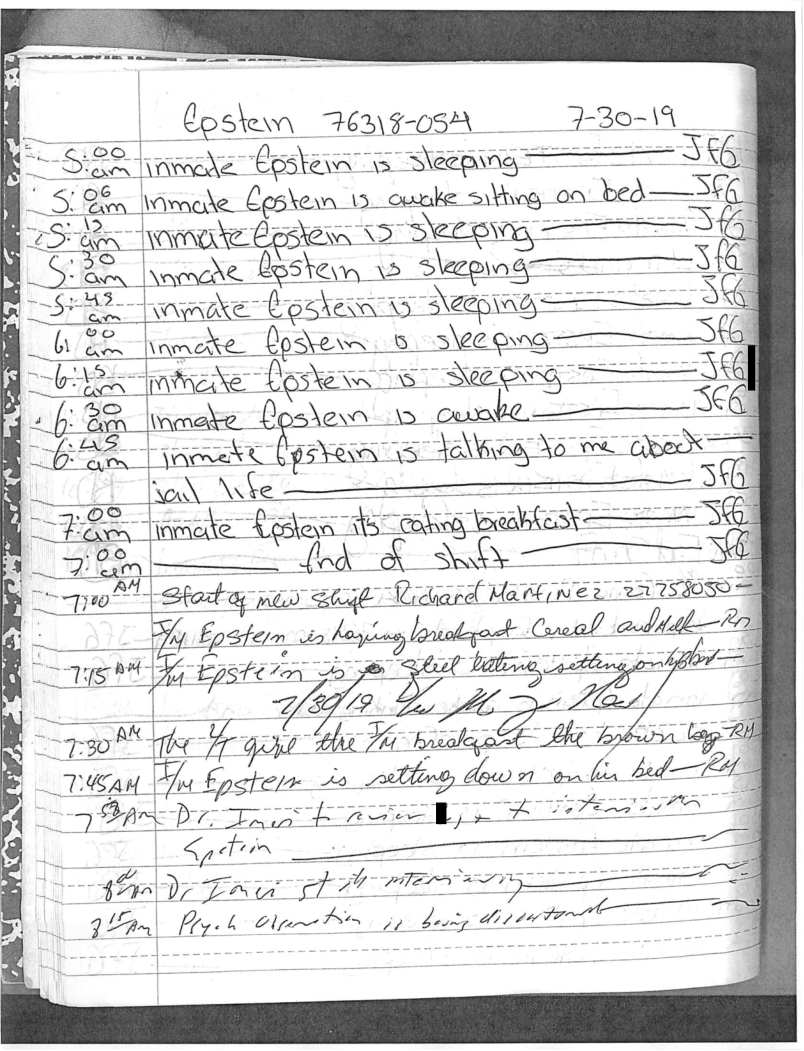 Epstein 76318-054 7-30-19
5:00 am inmate Epstein is sleeping JFG
5:06 am inmate Epstein is awake sitting on bed JFG
5:15 am inmate Epstein is sleeping JFG
5:30 am inmate Epstein is sleeping JFG
5:45 am inmate Epstein is sleeping JFG
6:00 am inmate Epstein is sleeping JFG
6:15 am inmate Epstein is sleeping JFG
6:30 am inmate Epstein is awake JFG
6:45 am inmate Epstein is talking to me about
jail life JFG
7:00 am inmate Epstein its eating breakfast JFG
7:00 am End of shift JFG
7:00 AM Start of new shift Richard Martinez 22758050
I/M Epstein is having breakfast Cereal and Milk RM
7:15 AM I/M Epstein is steel eating setting on his bed
7/30/19
7:30 AM The give the I/M breakfast the brown bag RM
7:45 AM I/M Epstein is setting down on his bed RM
AM Dr. to review
Epstein
AM Dr
8:15 AM Psych observation is being